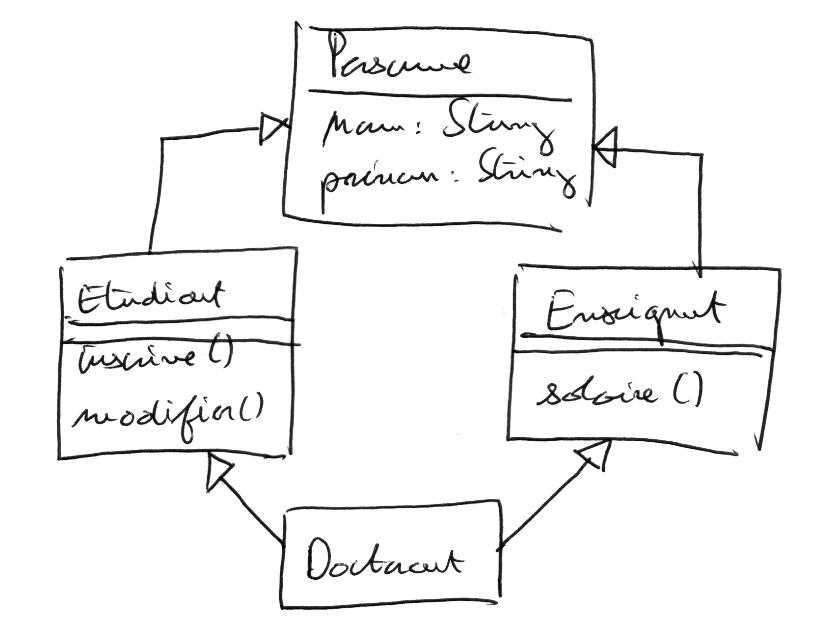 Personne
nom : String
prénom : String
Etudiant
inscrire ()
modifier()
Enseignant
salaire ()
Doctorant